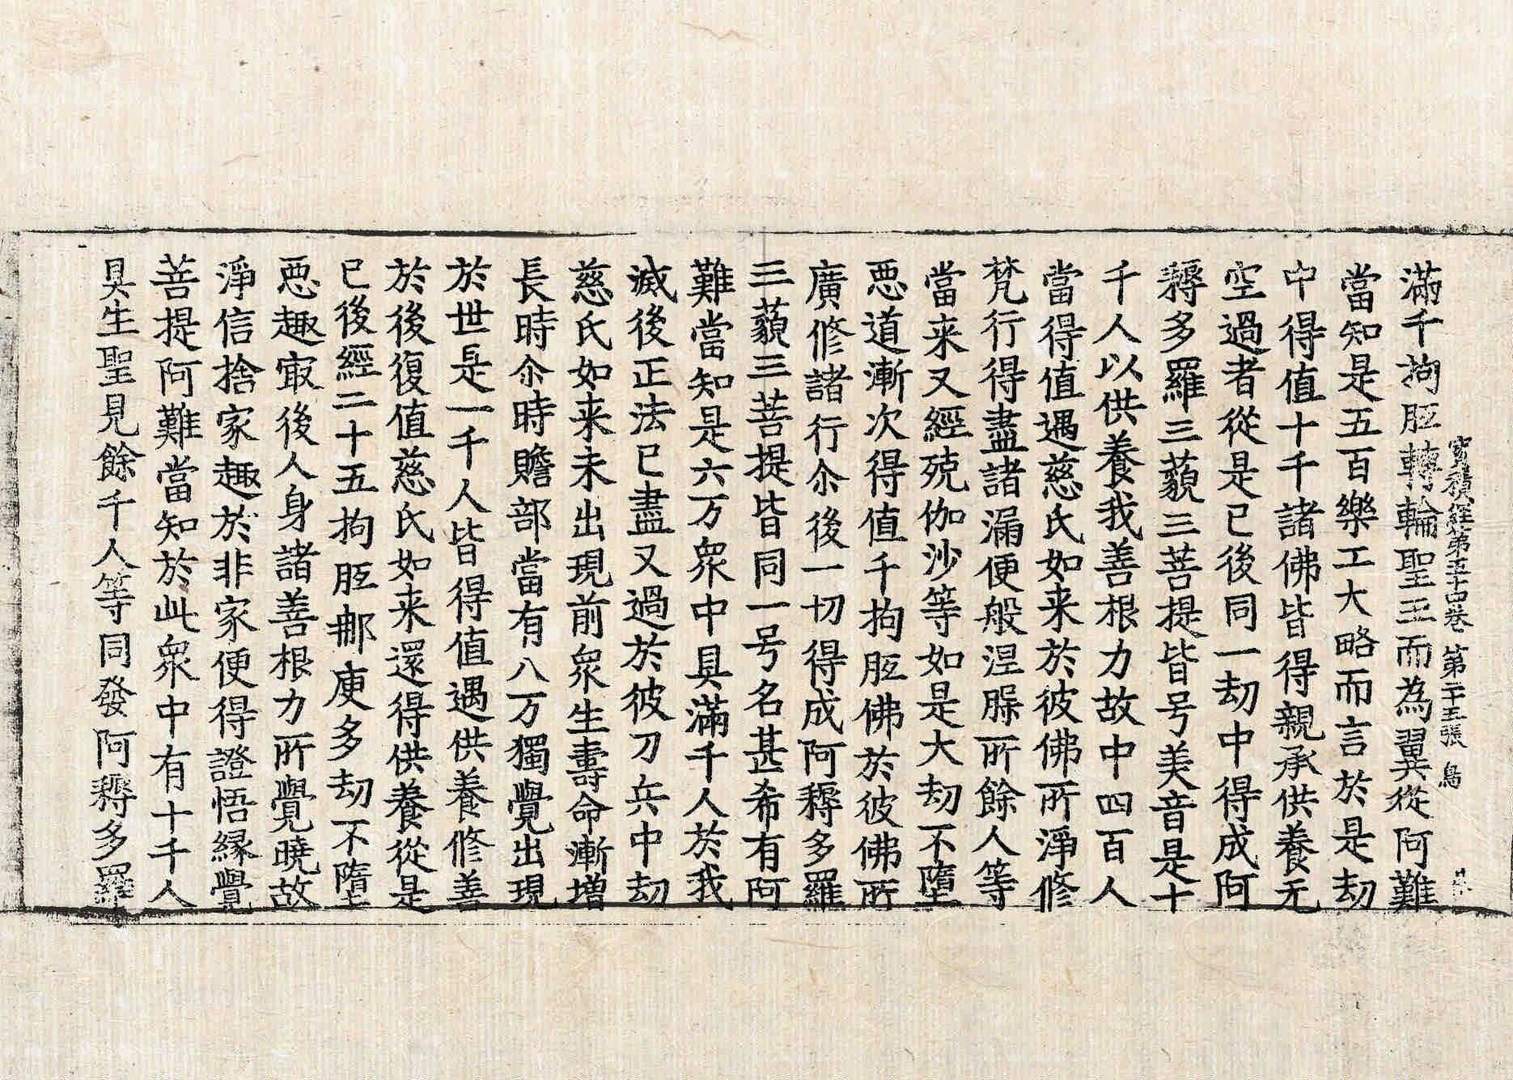 寳積經第五十四卷 第二十五張 鳥
滿千拘胝轉輪聖王而為翼從阿難
當知是五百樂工大略而言於是劫
中得值十千諸佛皆得親承供養无
空過者從是已後同一劫中得成阿
耨多羅三藐三菩提皆号美音是十
千人以供養我善根力故中四百人
當得值遇慈氏如来於彼佛所淨修
梵行得盡諸漏便般涅槃所餘人等
當来又經殑伽沙等如是大劫不墮
惡道漸次得值千拘胝佛於彼佛所
廣修諸行尒後一切得成阿耨多羅
三藐三菩提皆同一号名甚希有阿
難當知是六万衆中具滿千人於我
滅後正法已盡又過於彼刀兵中劫
慈氏如来未出現前衆生壽命漸增
長時尒時贍部當有八万獨覺出現
於世是一千人皆得值遇供養修善
於後復值慈氏如来還得供養從是
已後經二十五拘胝那庾多劫不墮
惡趣冣後人身諸善根力所覺曉故
淨信捨家趣於非家便得證悟緣覺
菩提阿難當知於此衆中有十千人
具生聖見餘千人等同發阿耨多羅